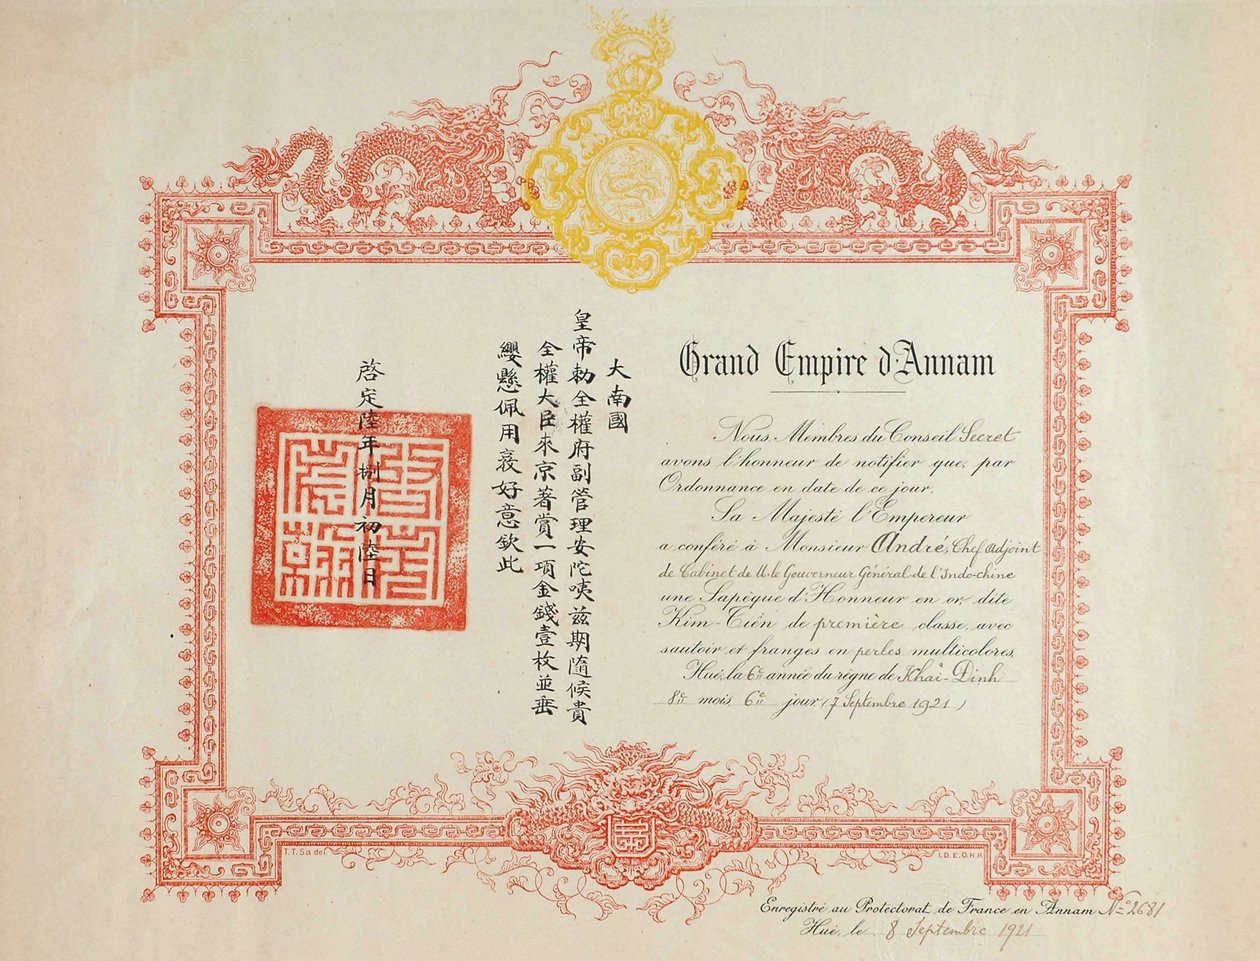 Grand Empire d'Annam
Nous, Membres du Conseil Secret
avons l'honneur de notifier que, par
Ordonnance en date de ce jour,
Sa Majesté l'Empereur
a conféré à Monsieur André, Chef adjoint
de Cabinet de M. le Gouverneur Général de l'Indo-chine
une Sapèque d'Honneur en or, dite
Kim-Tiên de première classe, avec
sautoir et franges en perles multicolores
Hué, la 6e année du règne de Khai-Dinh
8e mois, 6e jour (7 Septembre 1921)
大南國
皇帝勅全權府副管理安陀咦茲期隨候貴
全權大臣來京著賞一項金錢壹枚並垂
纓懸佩用衮好意欽此
啓定陸年捌月初陸日
T.T.Sa del.
I.D.E.O.H.H
Enregistré au Protectorat de France en Annam No 2681
Hué, le 8 Septembre 1921